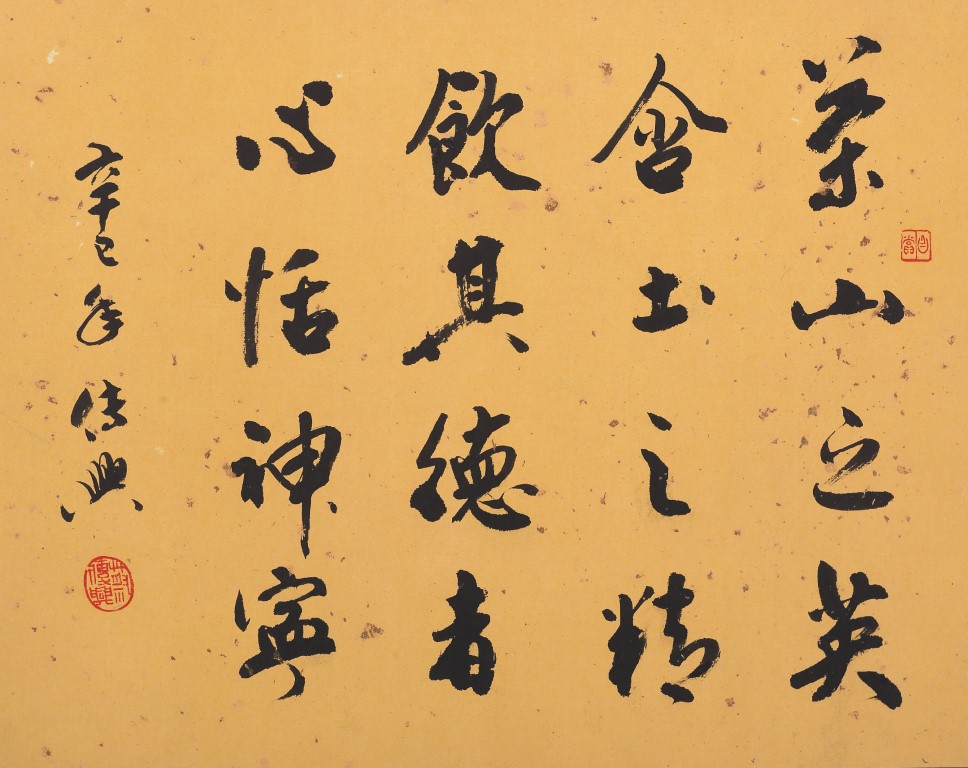 山之英
含土之精
飲其德者
心恬神寧
辛巳年 传興